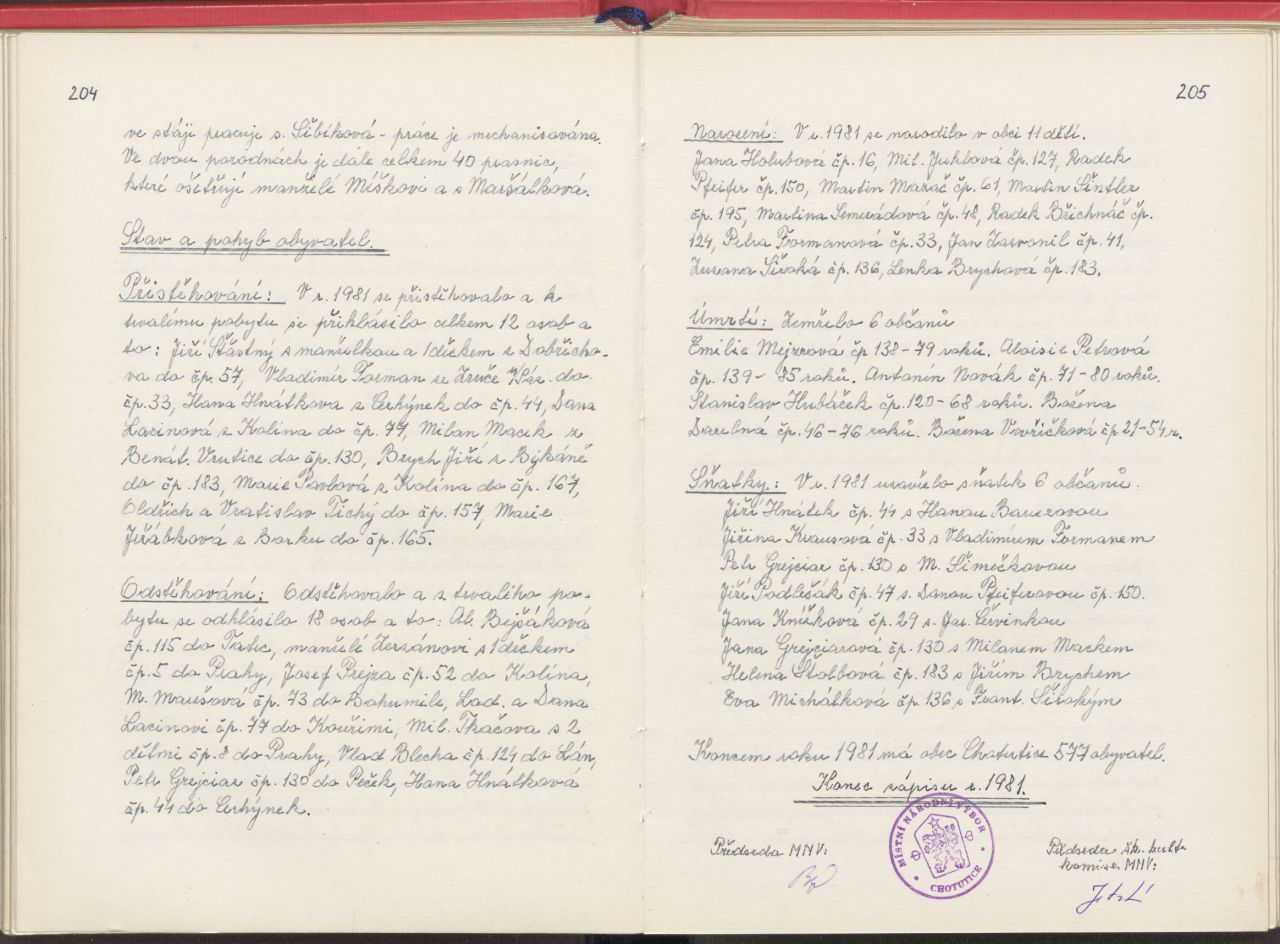 204
ve stáji pracuje s. Šibíková - práce je mechanisována.
Ve dvou porodnách je dále celkem 40 prasnic,
které ošetřují manželé Míškovi a s Maršálková.
Stav a pohyb obyvatel.
Přistěhování: V r. 1981 se přistěhovalo a k
trvalímu pobytu se přihlásilo celkem 12 osob a
to: Jiří Šťástný s manželkou a 1 děckem z Dobřicho-
va do čp. 57, Vladimír Forman se Zruče n/Sáz. do
čp. 33, Hana Hnátkova z Cerhýnek do čp. 44, Dana
Lacinová z Kolína do čp. 77, Milan Macek z
Benát. Vrutice do čp. 130, Brych Jiří z Býkáně
do čp. 183, Marie Pavlová z Kolína do čp. 167,
Oldřich a Vratislav Tichý do čp. 157, Marie
Jiřábková z Borku do čp. 165.
Odstěhování: Odstěhovalo a z trvalího po-
bytu se odhlásilo 18 osob a to: Al. Bejšáková
čp. 115 do Tatec, manželé Zerzánovi s 1 děckem
čp. 5 do Prahy, Josef Prejza čp. 52 do Kolína,
M. Marešová čp. 73 do Bohumile, Lad. a Dana
Lacinovi čp. 77 do Kouřimi, Mil. Tkáčova s 2
dětmi čp. 8 do Prahy, Vlad Blecha čp. 124 do Lán,
Petr Grejciar čp. 130 do Peček, Hana Hnátková
čp. 44 do Cerhýnek.
205
Narození: V r. 1981 se narodilo v obci 11 dětí.
Jana Holubová čp. 16, Mil. Juklová čp. 127, Radek
Pfeifer čp. 150, Martin Mazač čp. 61, Martin Šintler
čp. 195, Martina Semerádová čp. 48, Radek Břichnáč čp.
124, Petra Formanová čp. 33, Jan Zazvonil čp. 41,
Zuzana Široká čp. 136, Lenka Brychová čp. 183.
Úmrtí: Zemřelo 6 občanů
Emilie Mejzrová čp 138 - 79 roků. Aloisie Petrová
čp. 139 - 85 roků. Antonín Novák čp. 71 - 80 roků.
Stanislav Hubáček čp. 120 - 68 roků. Božena
Darebná čp. 46 - 76 roků. Božena Vavřičková čp 21 - 54 r.
Sňatky: V r. 1981 uzavřelo sňatek 6 občanů.
Jiří Hnátek čp. 44 s Hanou
Jiřina Krausová čp. 33 s Vladimírem Formanem
Petr Grejciar čp. 130 s M. Šimečkovou
Jiří Podlešák čp. 47 s. Danou Pfeiferovou čp. 150.
Jana Knížková čp. 29 s. Jar. Červinkou
Jana Grejciarová čp. 130 s Milanem Mackem
Helena Štolbová čp. 183 s Jiřím Brychem
Eva Michálková čp. 136 s Frant. Širokým
Koncem roku 1981 má obec Chotutice 577 obyvatel.
Konec zápisu r. 1981.
Předseda MNV:
MÍSTNÍ NÁRODNÍ VÝBOR
CHOTUTICE
Předseda šk. kult.
komise MNV: